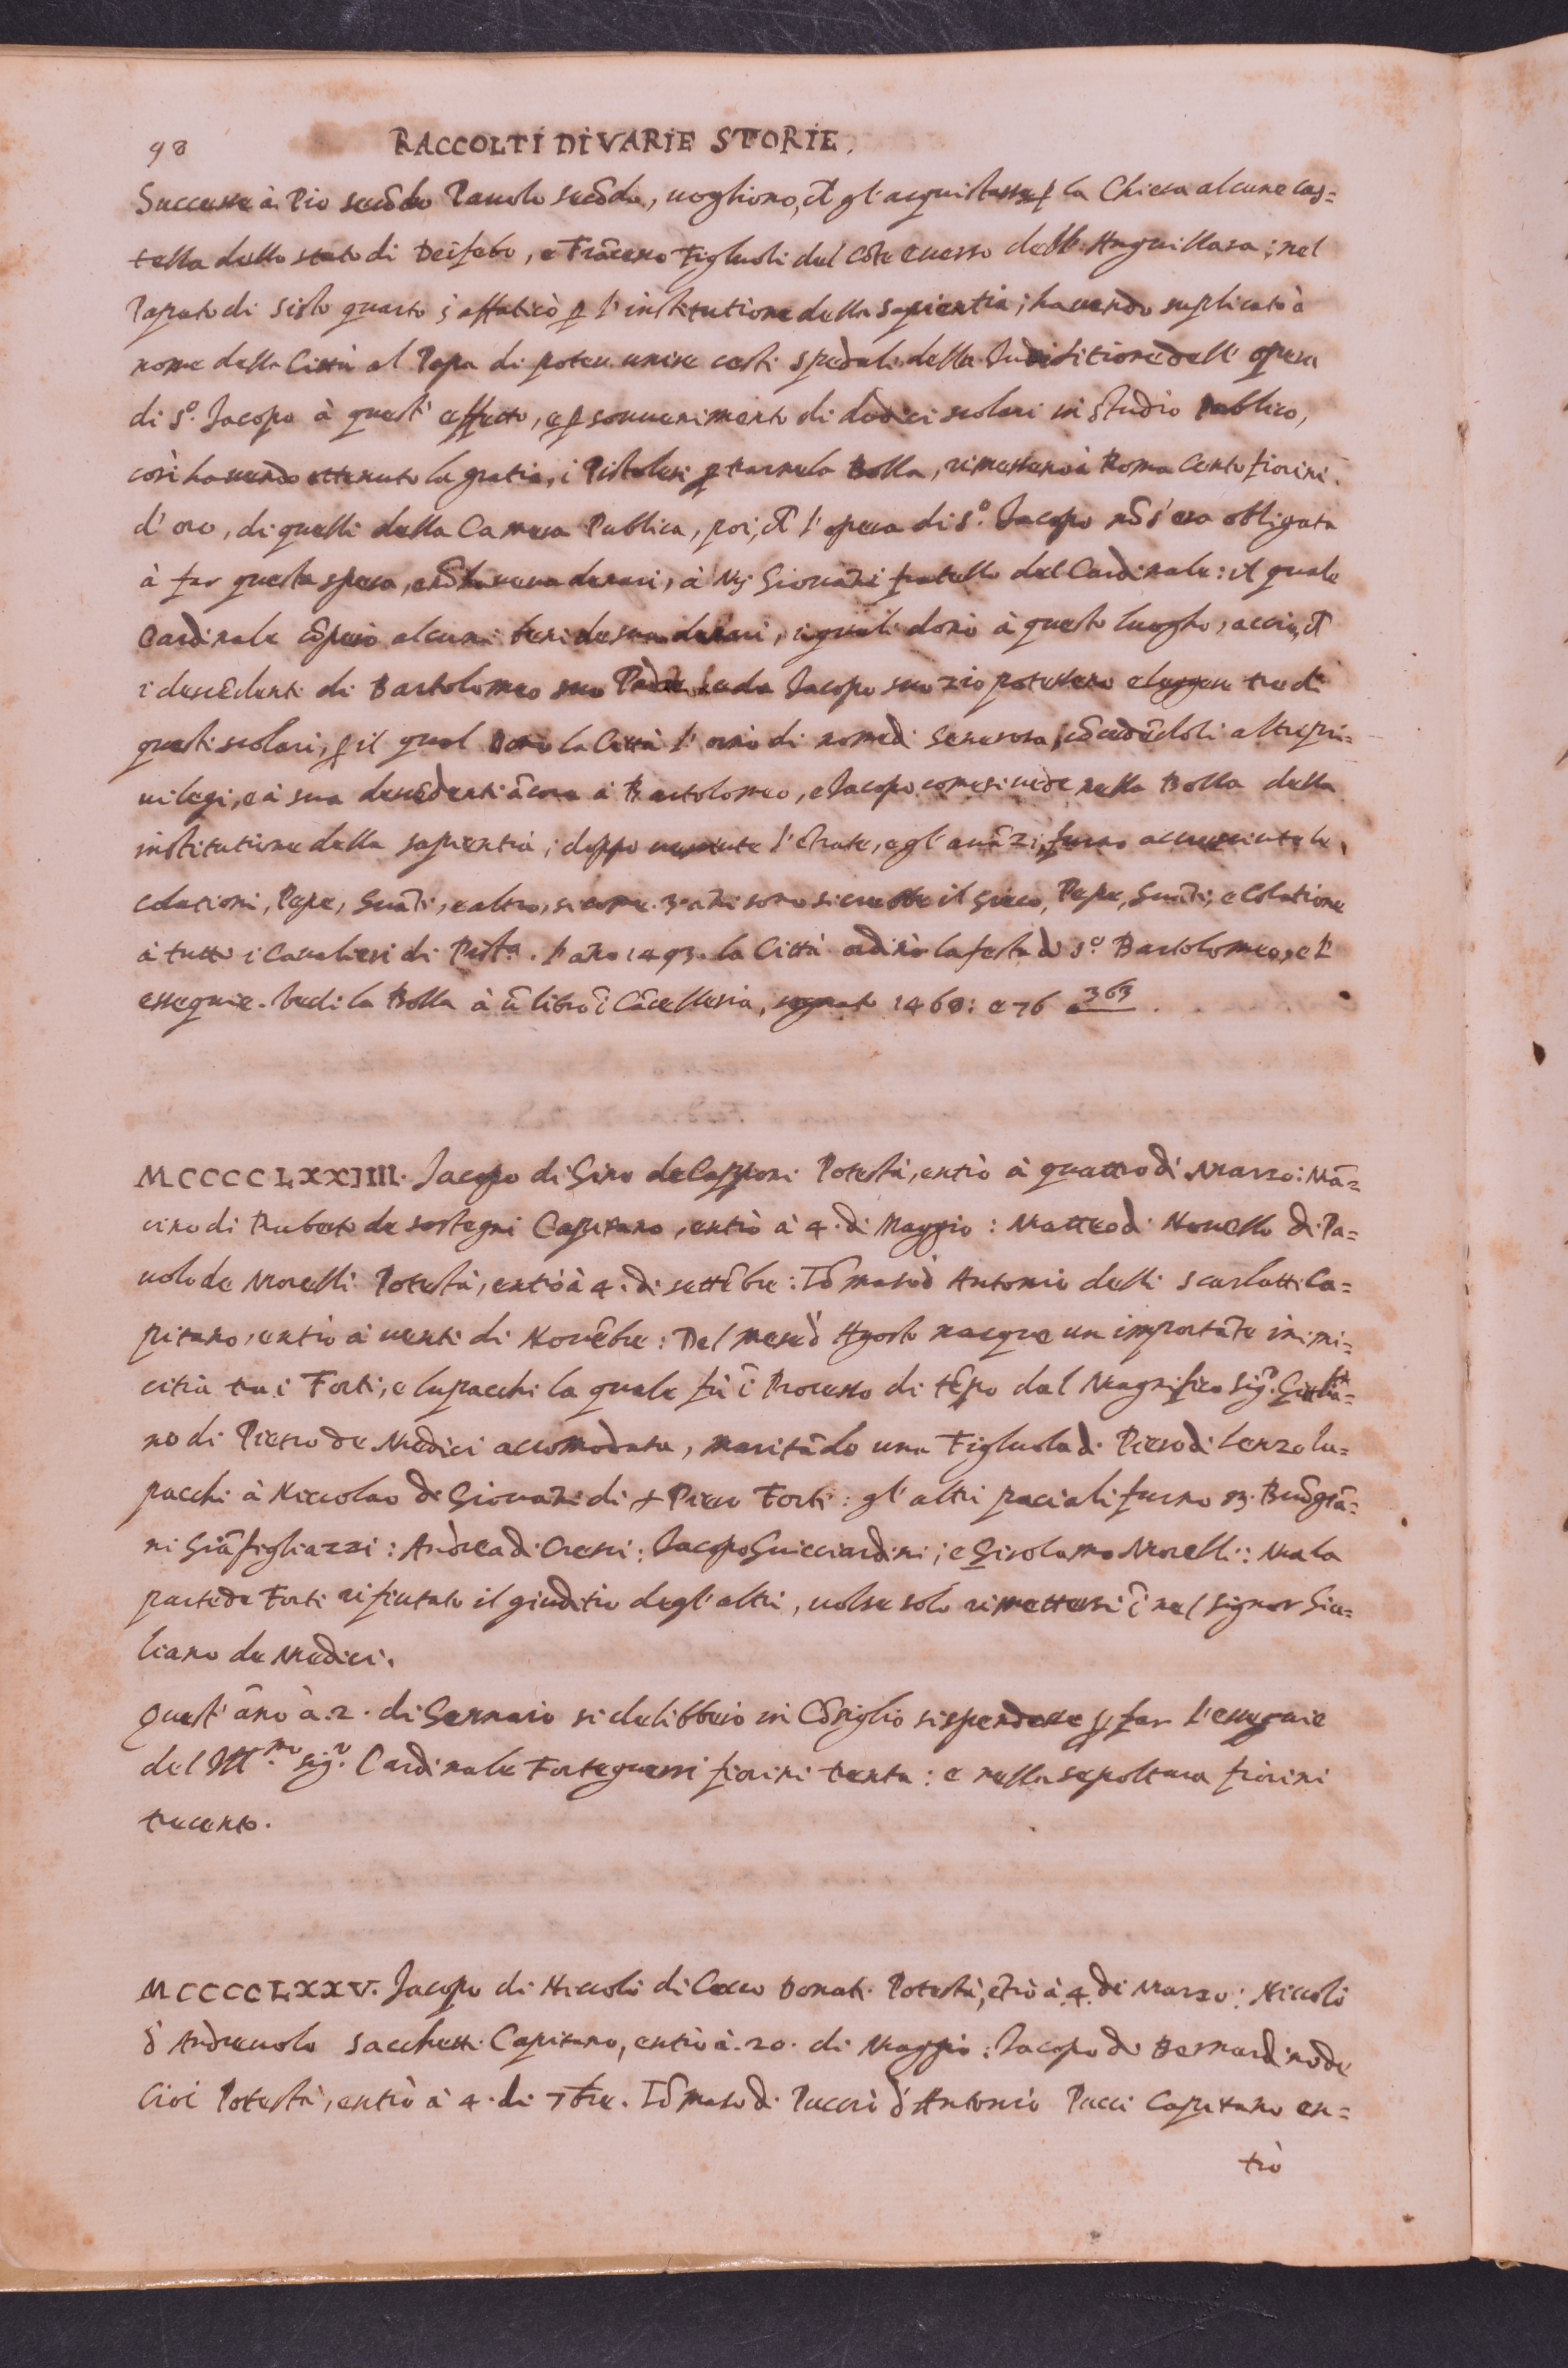 98 RACCOLTI DI VARIE STORIE.
Successe à Pio secõdo Pauolo secõdo, uogliono, ch̃ gl'acquistasse ꝑ la Chiesa alcune cas=
tella dello stato di Deifebo, e Frãcesco Figluoli del Cõte Euerso dell'Anguillara; nel
Papato di Sisto quarto s'affaticò ꝑ l'institutione della Sapientia; hauendo suplicato à
nome della Città al Papa di poter unire certi spedali della Iurisditione dell'opera
di S.º Jacopo à quest'effetto, e ꝑ souuenimento di dodici scolari in studio Pablico,
così hauendo ottenuto la gratia, i Pistolesi ꝑ trarne la Bolla, rimessero à Roma Cento fiorini
d'oro, di quelli della Camera Publica, poi, ch̃ l'opera di S.º Jacopo nõ s'era obligata
à far questa spesa, e nõ haueua denari, à Mʒ Giouãni fratello del Cardinale: il quale
Cardinale cõprò alcuni beni de suoi denari, i quali donò à questo luogho, acciò, ch̃
i descẽdenti di Bartolomeo suo Padre e da Jacopo suo zio potessero eleggere tre di
questi scolari, ꝑ il qual Dono la Città l'ornò di nome di Generosa, cõcedẽdoli altri pri=
uilegi, e à sua descẽdenti ãcora à Bartolomeo, e Jacopo come si uede nella Bolla della
institutione della sapientia; doppo uenute l'ẽtrate, e gl'auãzi, furno accresciute le
colationi, Pepe, Guãti, e altro, si come 30 ãni sono si crebbe il Greco, Pepe, Guãti, e Colatione
à tutti i Caualieri di Pist.ª. l'ãno 1493. la Città ordinò la festa di S.º Bartolomeo, e l'
essequie. Vedi la Bolla à ũ libro ĩ Cãcelleria, segnato 1468: e 76 363.
MCCCCLXXIIII. Jacopo di Gino de Capponi Potestà, entrò à quattro di Marzo: Mã=
cino di Ruberto de sostegni Capitano, entrò à 4. di Maggio: Matteo di Morello di Pa=
uolo de Morelli Potestà, entrò à 4. di settẽbre: Tõmaso d' Antonio delli scarlatti Ca=
pitano, entrò à uenti di Nouẽbre: Del mese d' Agosto nacque un importãte inimi=
citia tra i Forti, e lupacchi la quale fù ĩ Processo di tẽpo dal Magnifico Sig.r Giulia=
no di Pietro de Medici accomodata, maritãdo una Figluola di Piero di lenzo lu=
pacchi à Niccolao di Giouãni di + Piero Forti: gl'altri paciali furno m. Buõgiã=
ni Giãfigliazzi: Andrea di Cresci: Jacopo Guicciardini; e Girolamo Morelli: Ma la
parte de Forti rifiutato il giuditio degl'altri, uolse solo rimettersi ĩ nel Signor Giu=
liano de Medici.
Quest'ãno à. 2. di Gennaio si delibberò in Cõsiglio si spendesse ꝑ far l'essequie
del Ill.mo sig.r Cardinale Forteguerri fiorini trenta: e nella sepoltura fiorini
trecento.
MCCCCLXXV. Jacopo di Niccolò di Cocco Donati Potestà, ẽtrò à 4. di Marzo: Niccolò
d' Andreuolo Sacchetti Capitano, entrò à. 20. di Maggio: Jacopo di Bernardino de
Cioi Potestà, entrò à 4. di 7bre. Tõmaso di Puccio d'Antonio Pucci Capitano en=
trò